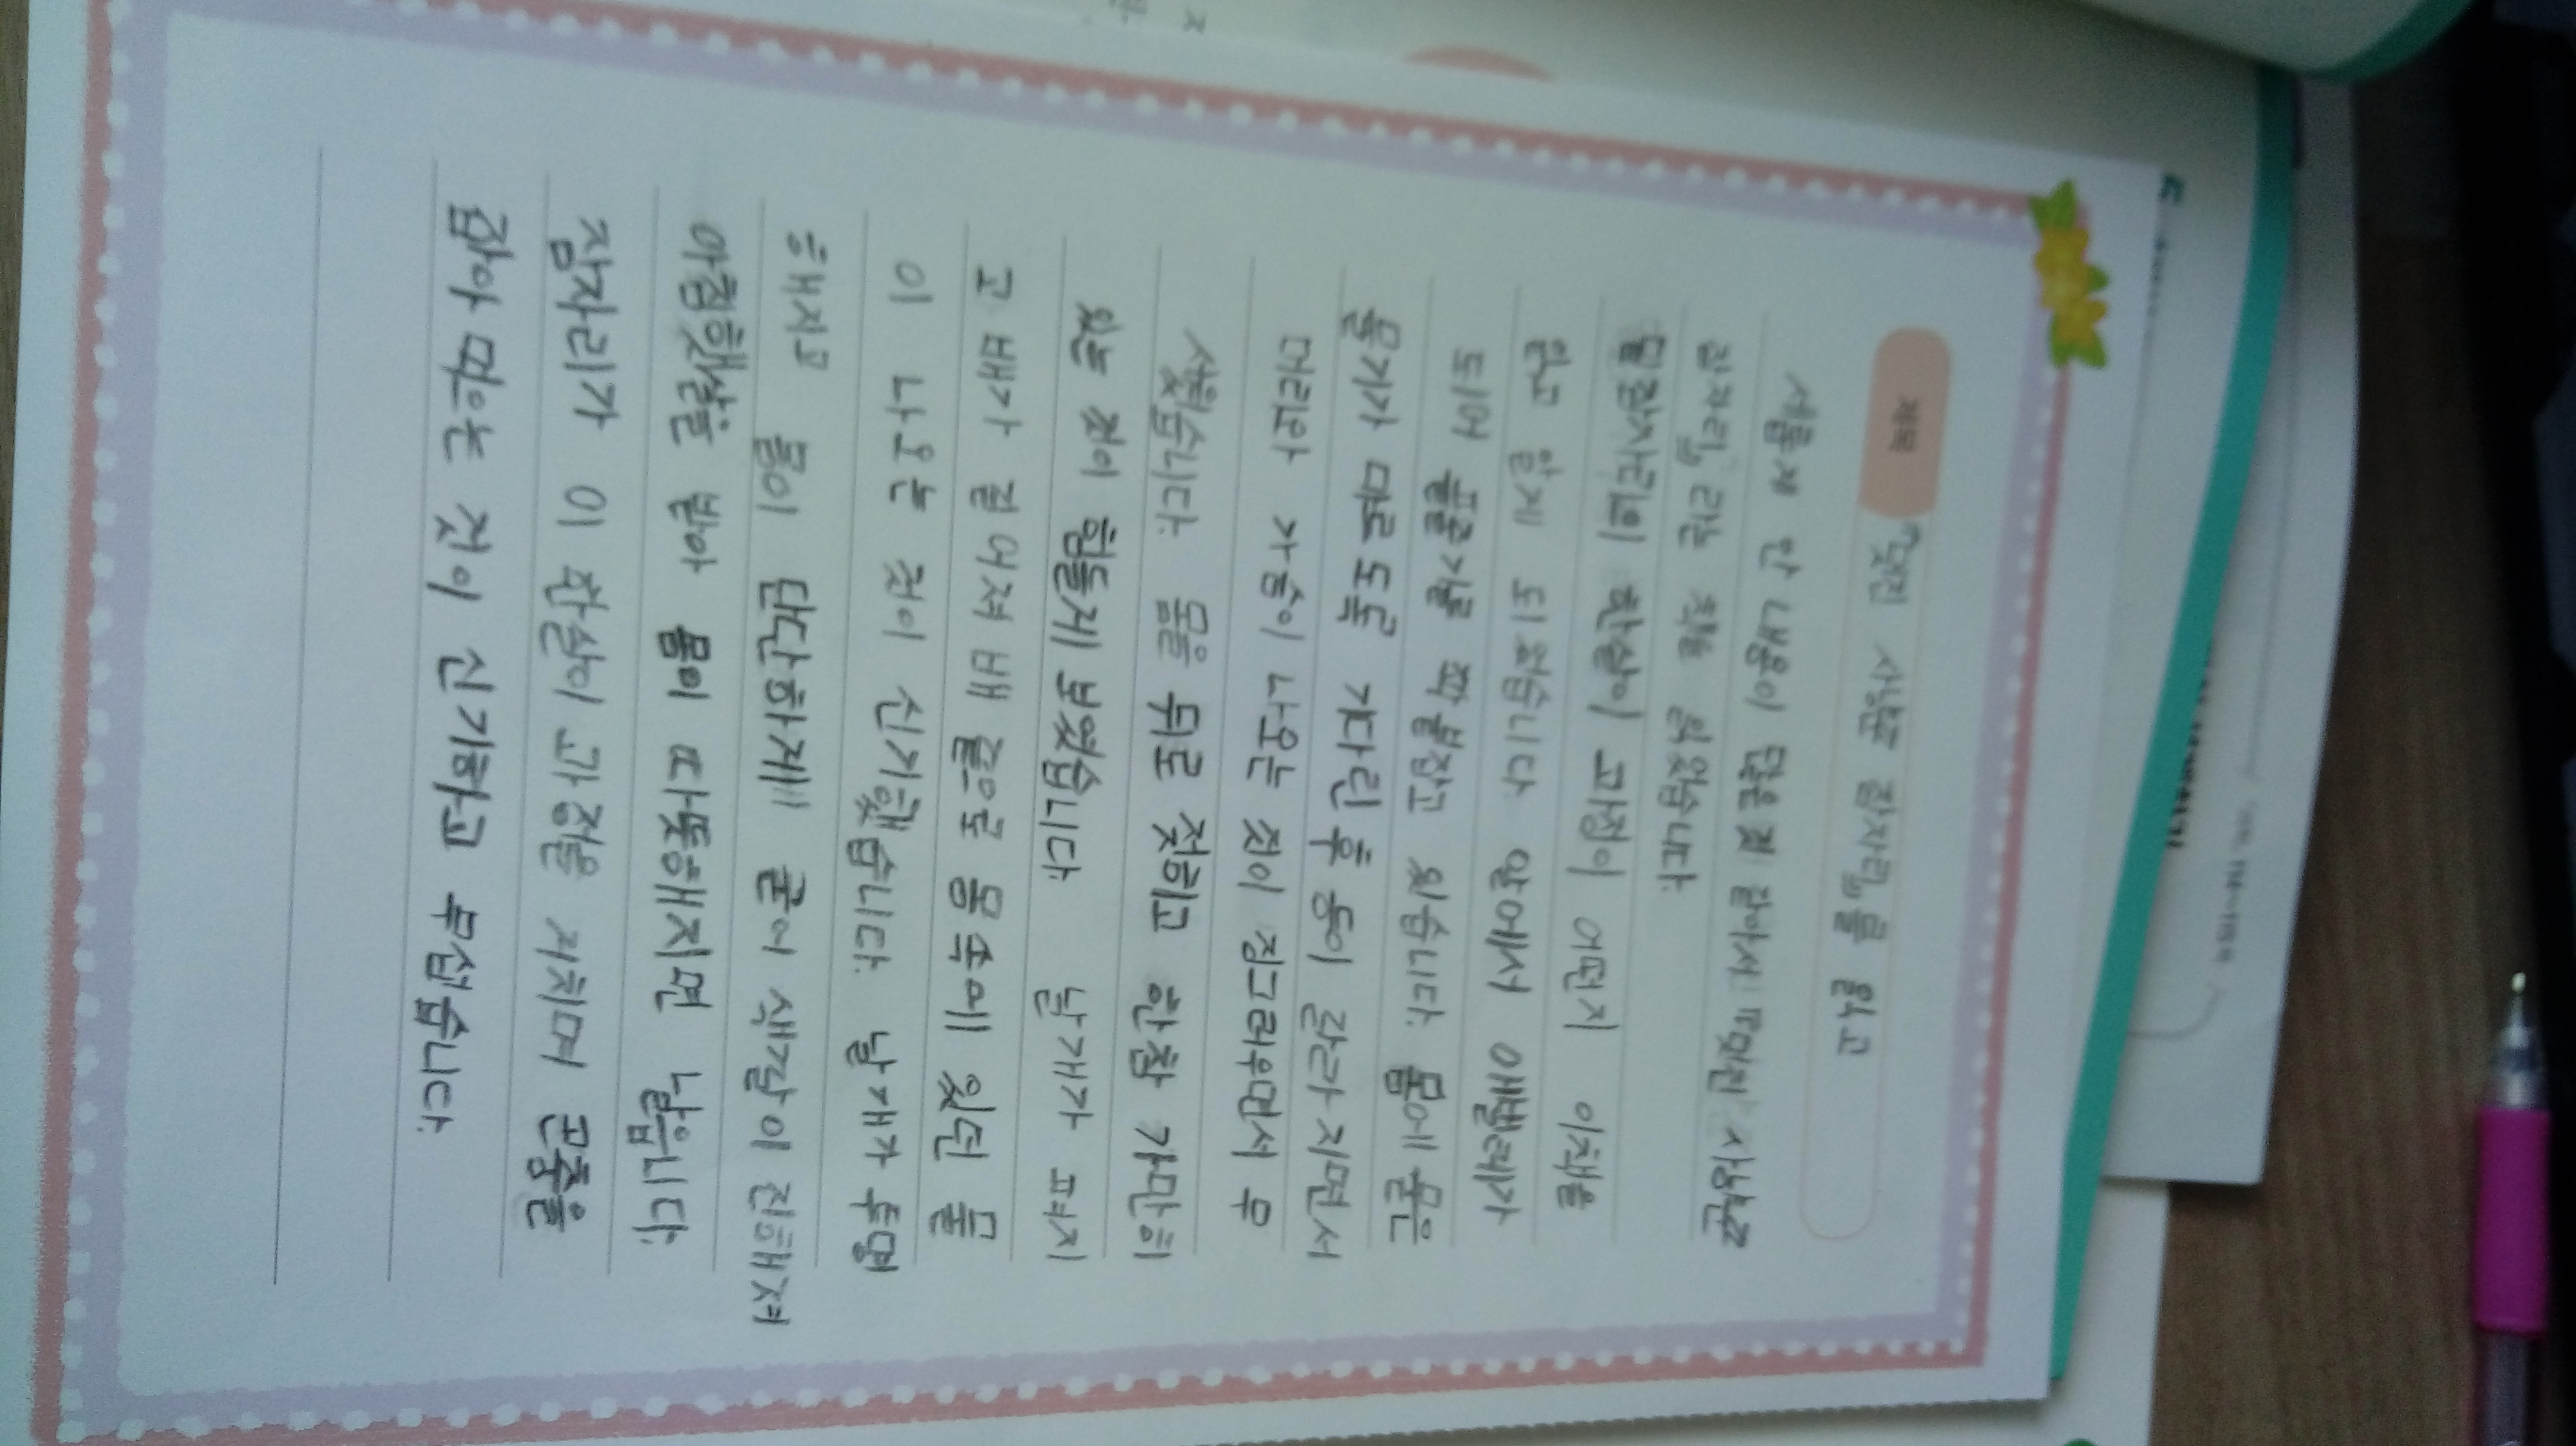 제목 『멋진 사냥꾼 잠자리』를 읽고
새롭게 안 내용이 많을 것 같아서 『멋진 사냥꾼
잠자리』라는 책을 읽었습니다.
물잠자리의 한살이 과정이 어떤지 이 책을
읽고 알게 되었습니다. 앞에서 애벌레가
되어 풀줄기를 꽉 붙잡고 있습니다. 몸에 묻은
물기가 마르도록 기다린 후 등이 갈라지면서
머리와 가슴이 나오는 것이 징그러우면서 무
서웠습니다. 몸을 뒤로 젖히고 한참 가만히
있는 것이 힘들게 보였습니다. 날개가 펴지
고 배가 길어져 배 끝으로 몸 속에 있던 물
이 나오는 것이 신기했습니다. 날개가 투명
해지고 몸이 단단하게 굳어 색깔이 진해져
아침햇살을 받아 몸이 따뜻해지면 납니다.
잠자리가 이 한살이 과정을 거치며 곤충을
잡아 먹는 것이 신기하고 무섭습니다.